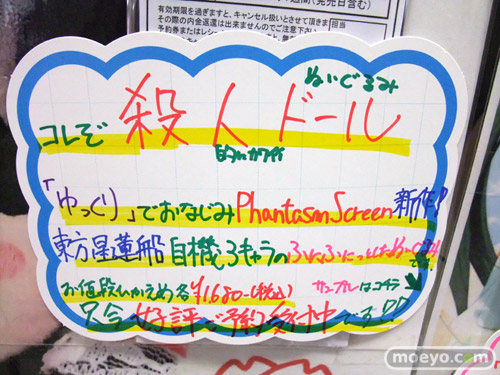 有効期限を過ぎますと、キャンセル扱いとさせて頂きま
その際の内金返還は出来ませんのでご注意下さ
担当
ぬいぐるみ
コレぞ 殺人ドール
的にカワイイ
「ゆっくり」でおなじみPhantasm Screen新作!
東方星蓮船自機3キャラのふにふにっとしたぬいぐるみ
です。
お値段ひかえめ各¥1,680-(税込) サンプルはコチラ
只今好評ご予約受付中です!!
moeyo.com